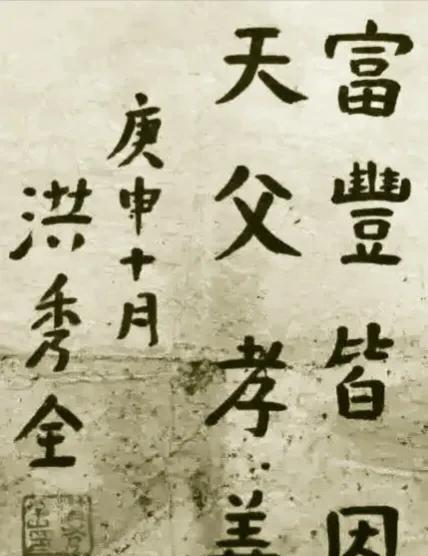 富豐皆因
天父孝義
庚申十月
洪秀全